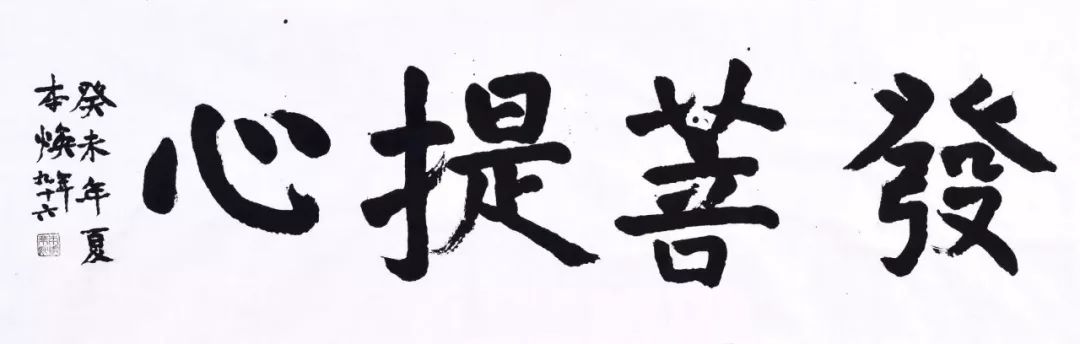 發菩提心
癸未年夏
本焕年九十六